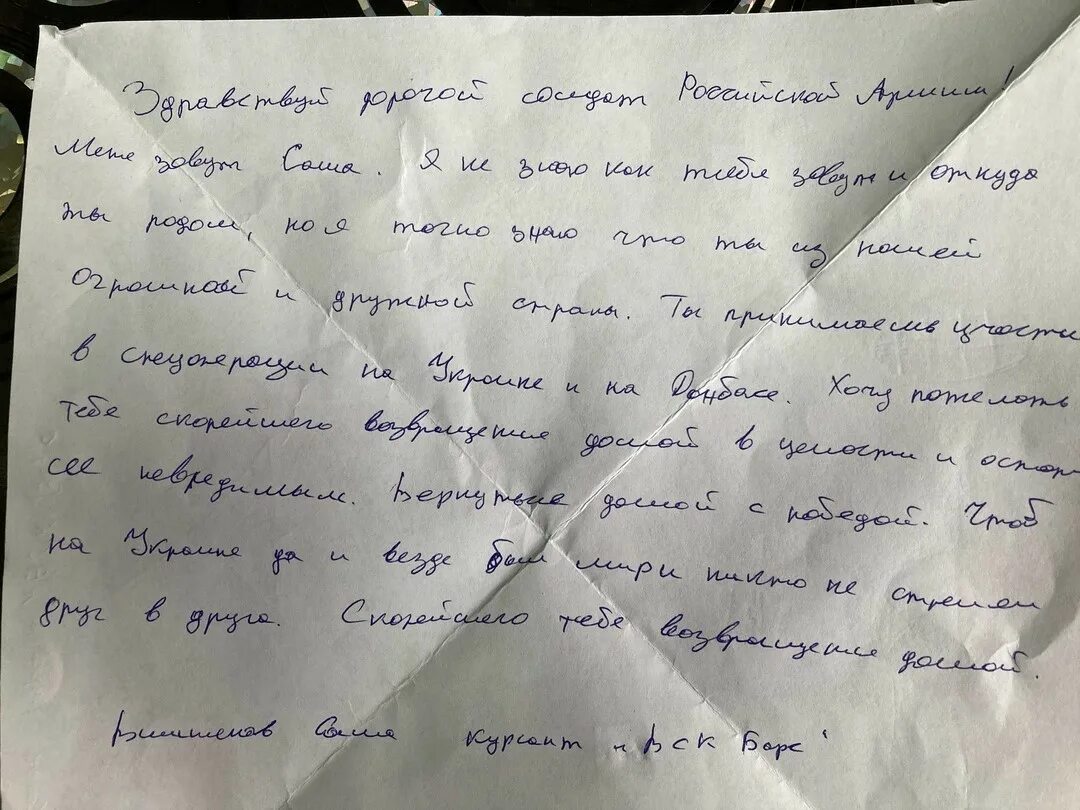 Здравствуй дорогой солдат Российской Армии!
Меня зовут Саша. Я не знаю как тебя зовут и откуда
ты родом, но я точно знаю что ты из нашей
огромной и дружной страны. Ты принимаешь участи
в спецоперации на Украине и на Донбасе. Хочу пожелать
тебе скорейшего возвращения домой в целости и остат
сее невредимым. Вернутьне домой с победой. Чтоб
на Украине да и везде был мир и никто не стрелял
друг в друга. Скорейшего тебе возвращения домой.
Саша курсант "ВСК Барс"